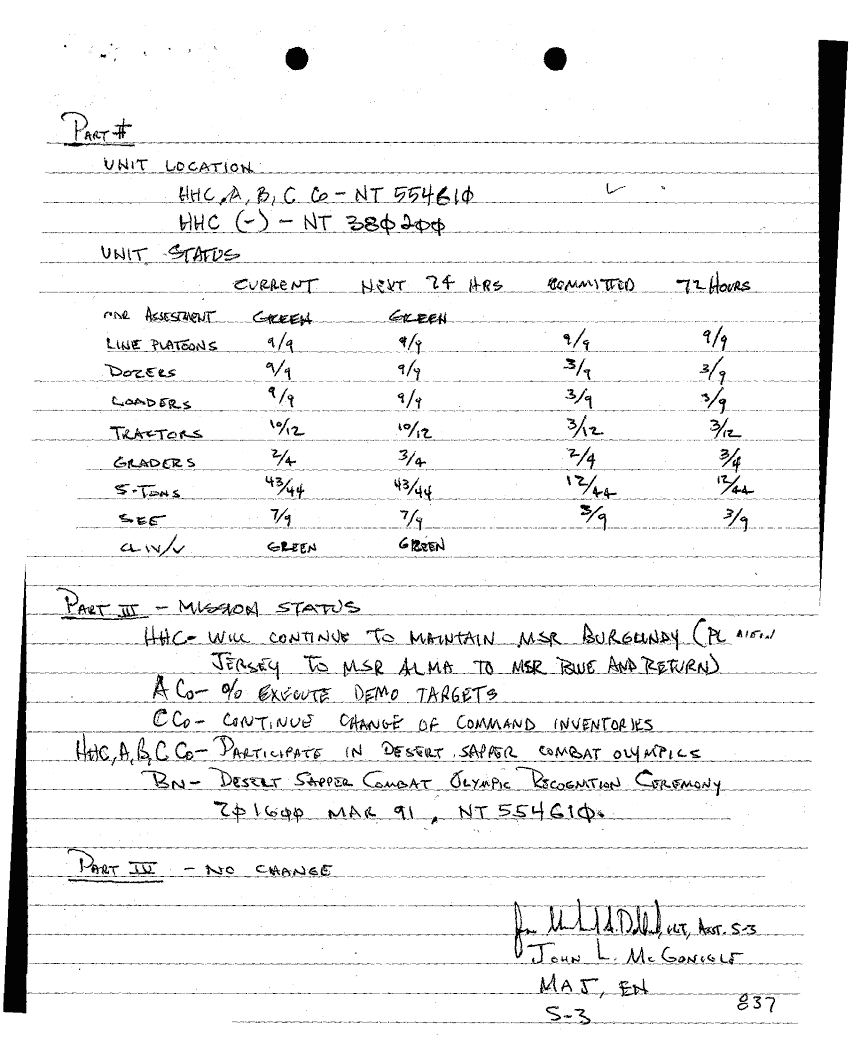 PART II
UNIT LOCATION
HHC, A, B, C Co - NT 554610
HHC (-) - NT 380200
UNIT STATUS
CURRENT NEXT 24 HRS COMMITTED 72 HOURS
CDR ASSESTMENT GREEN GREEN
LINE PLATOONS 9/9 9/9 9/9 9/9
DOZERS 9/9 9/9 3/9 3/9
LOADERS 9/9 9/9 3/9 3/9
TRACTORS 10/12 10/12 3/12 3/12
GRADERS 2/4 3/4 2/4 3/4
5-TONS 43/44 43/44 12/44 12/44
SEE 7/9 7/9 3/9 3/9
CL IV/V GREEN GREEN
PART III - MISSION STATUS
HHC - WILL CONTINUE TO MAINTAIN MSR BURGUNDY (PL
JERSEY TO MSR ALMA TO MSR BLUE AND RETURN)
A Co - % EXECUTE DEMO TARGETS
C Co - CONTINUE CHANGE OF COMMAND INVENTORIES
HHC, A, B, C Co - PARTICIPATE IN DESERT SAPPER COMBAT OLYMPICS
BN - DESERT SAPPER COMBAT OLYMPIC RECOGNITION CEREMONY
201600 MAR 91, NT 554610.
PART IV - NO CHANGE
ASST. S-3
JOHN L. McGONIGLE
MAJ, EN
S-3
837